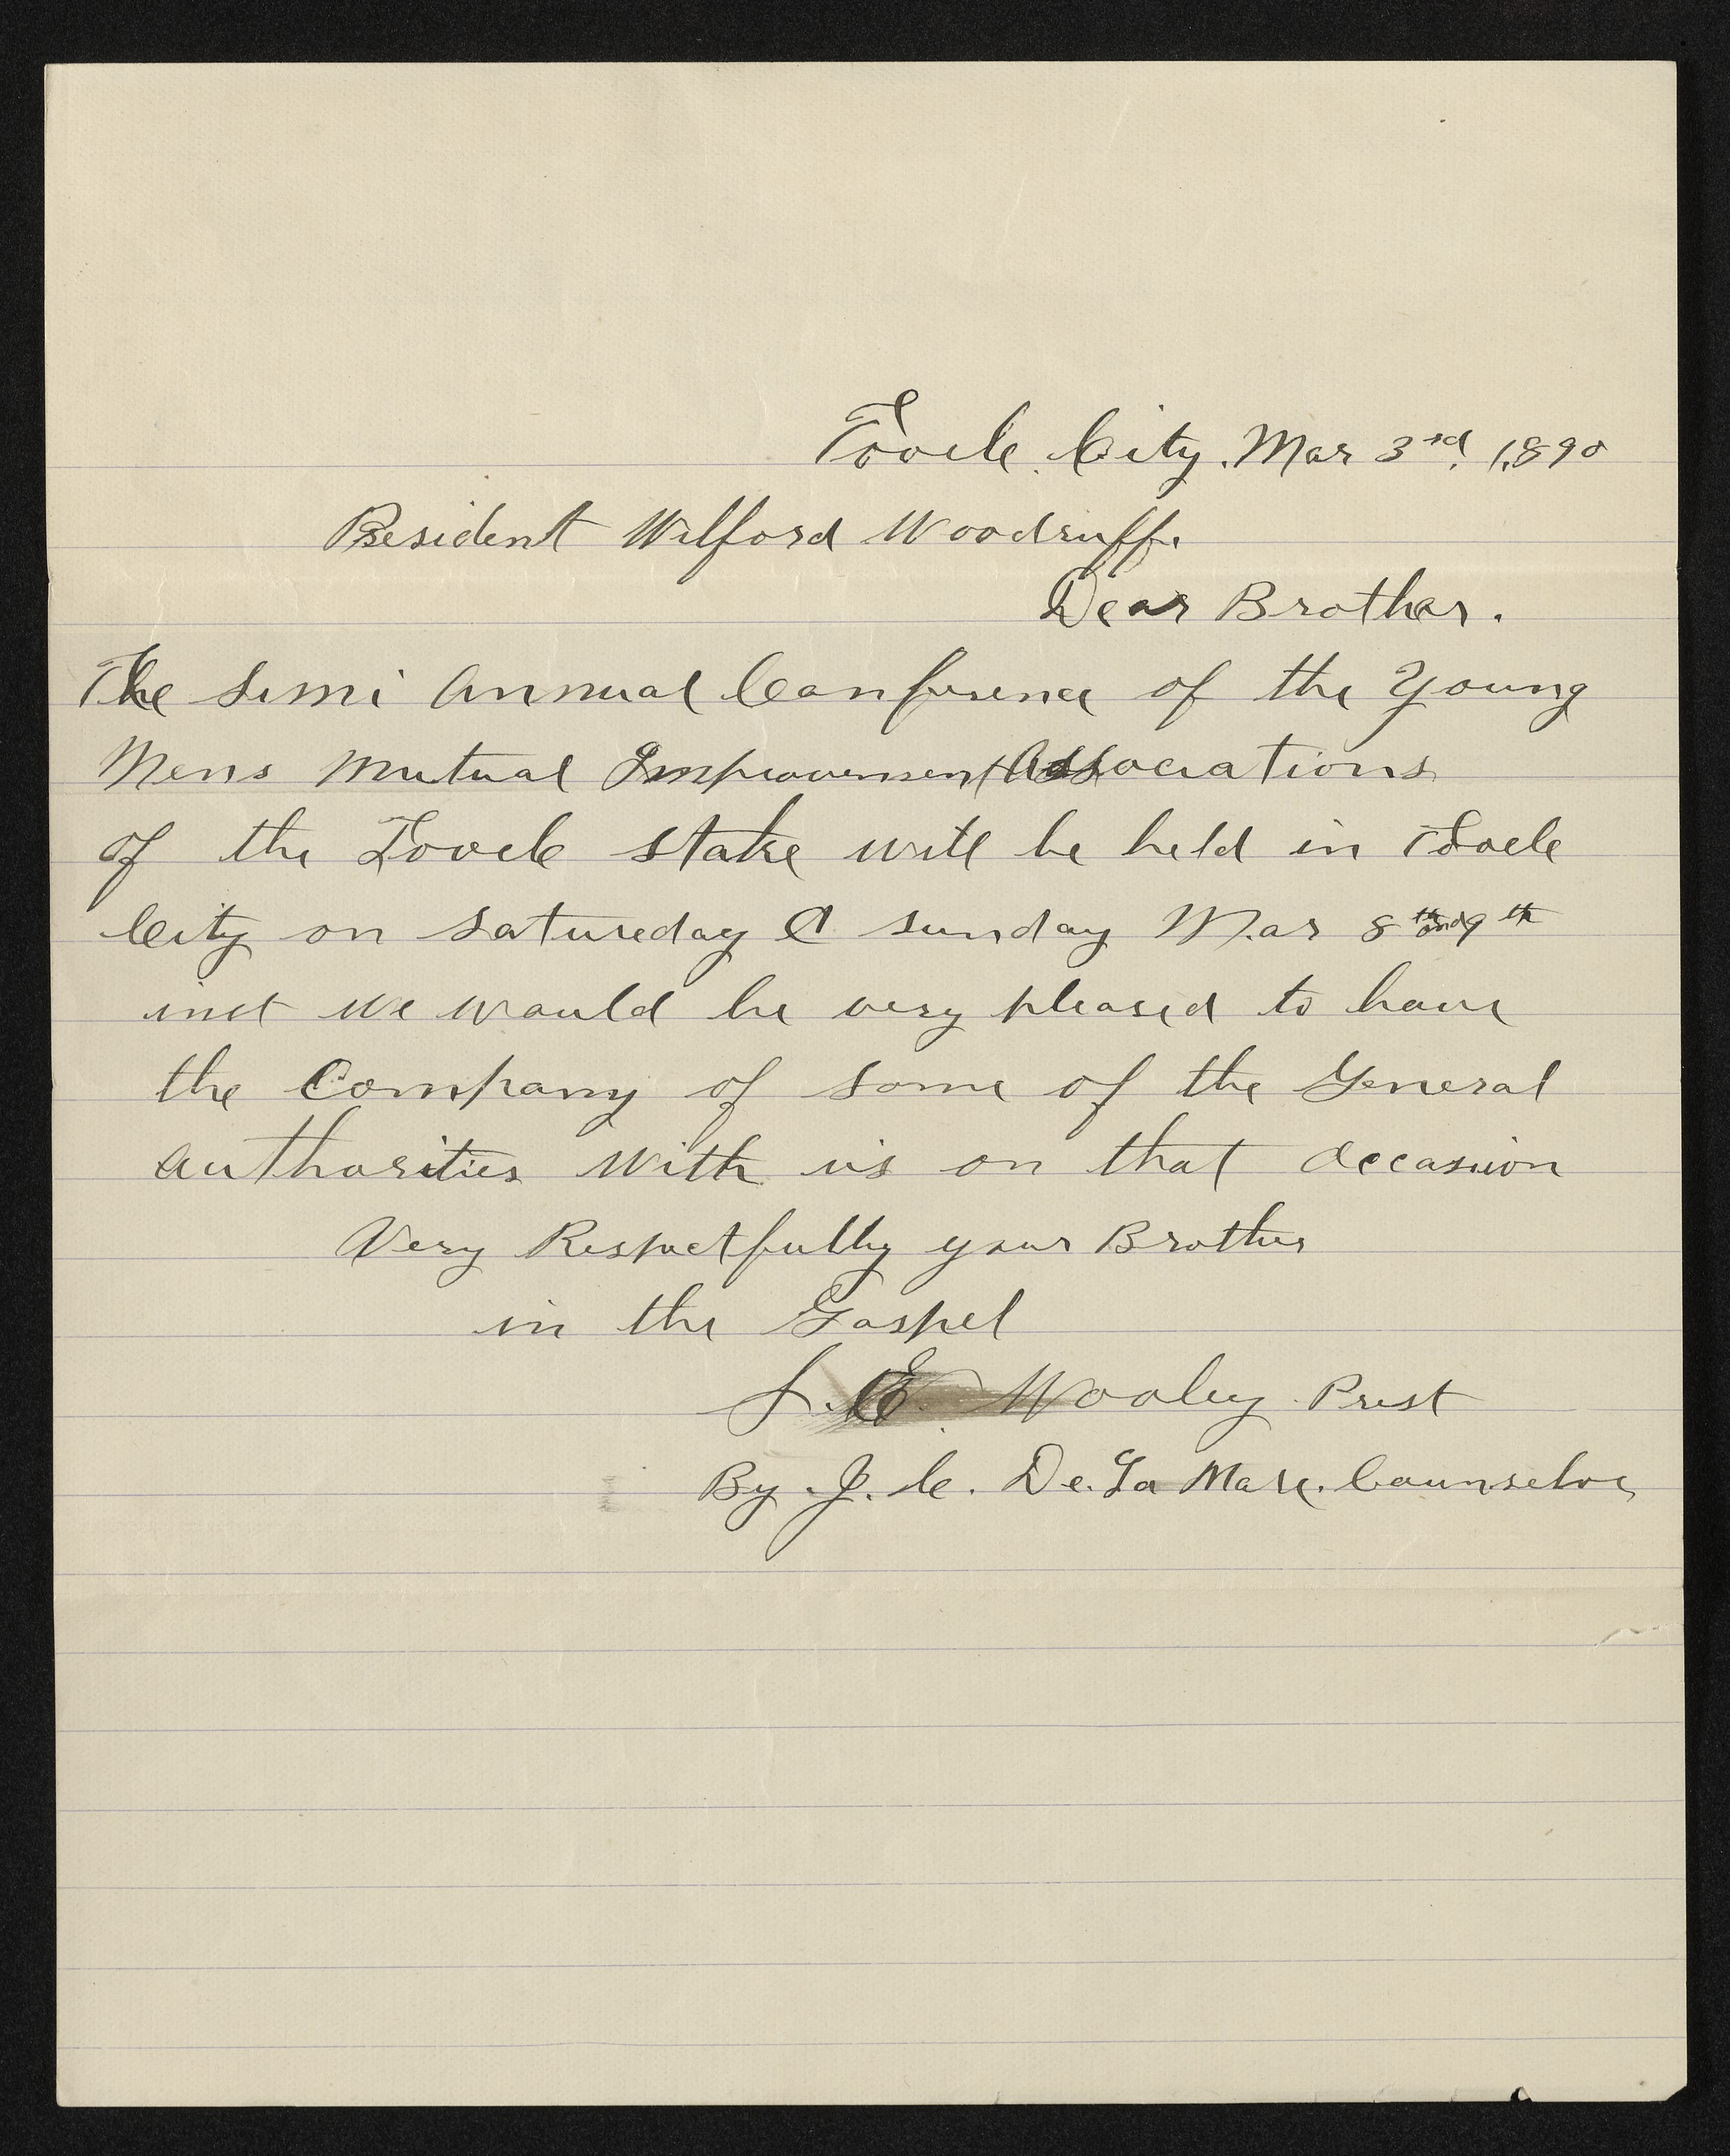 Tooele City. Mar 3rd, 1890
President Wilford Woodruff.
Dear Brother.
The Semi Annual Conference of the Young
Mens Mutual Improvement Associations
of the Tooele Stake will be held in Tooele
City on Satureday & Sunday Mar 8th and 9th
inst we would be very pleased to have
the Company of some of the General
authorities with us on that occasion
Very Respectfully your Brother
in the Gospel
E. Wooley Prest
By J. C. De. La Mare. Counselor